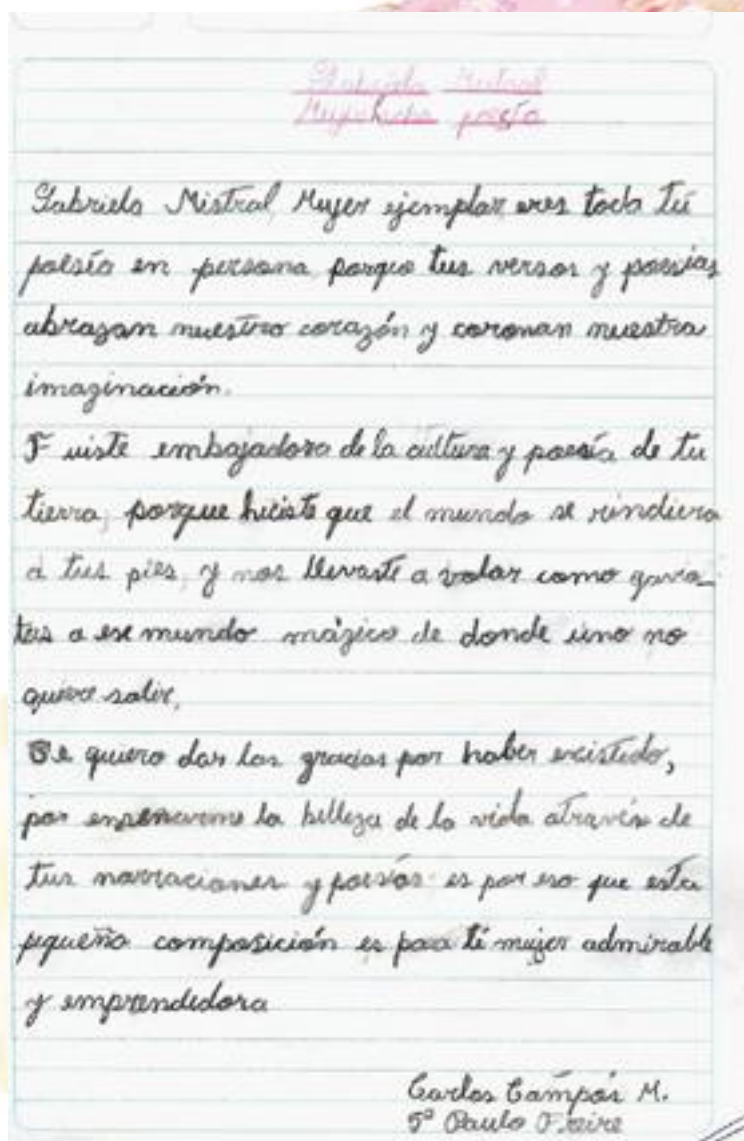 Gabriela Mistral
Mujer hecha poesía
Gabriela Mistral, Mujer ejemplar eres toda tú
poesía en persona, porque tus versos y poesías
abrazan nuestro corazón y coronan nuestra
imaginación.
Fuiste embajadora de la cultura y poesía de tu
tierra, porque hiciste que el mundo se rindiera
a tus pies, y nos llevaste a volar como gavio-
tas a ese mundo mágico de donde uno no
quiere salir,
Te quiero dar las gracias por haber existido,
por enseñarme la belleza de la vida através de
tus narraciones y poesías es por eso que esta
pequeña composición es para ti mujer admirable
y emprendedora
Carlos Campos M.
5º Paulo Freire